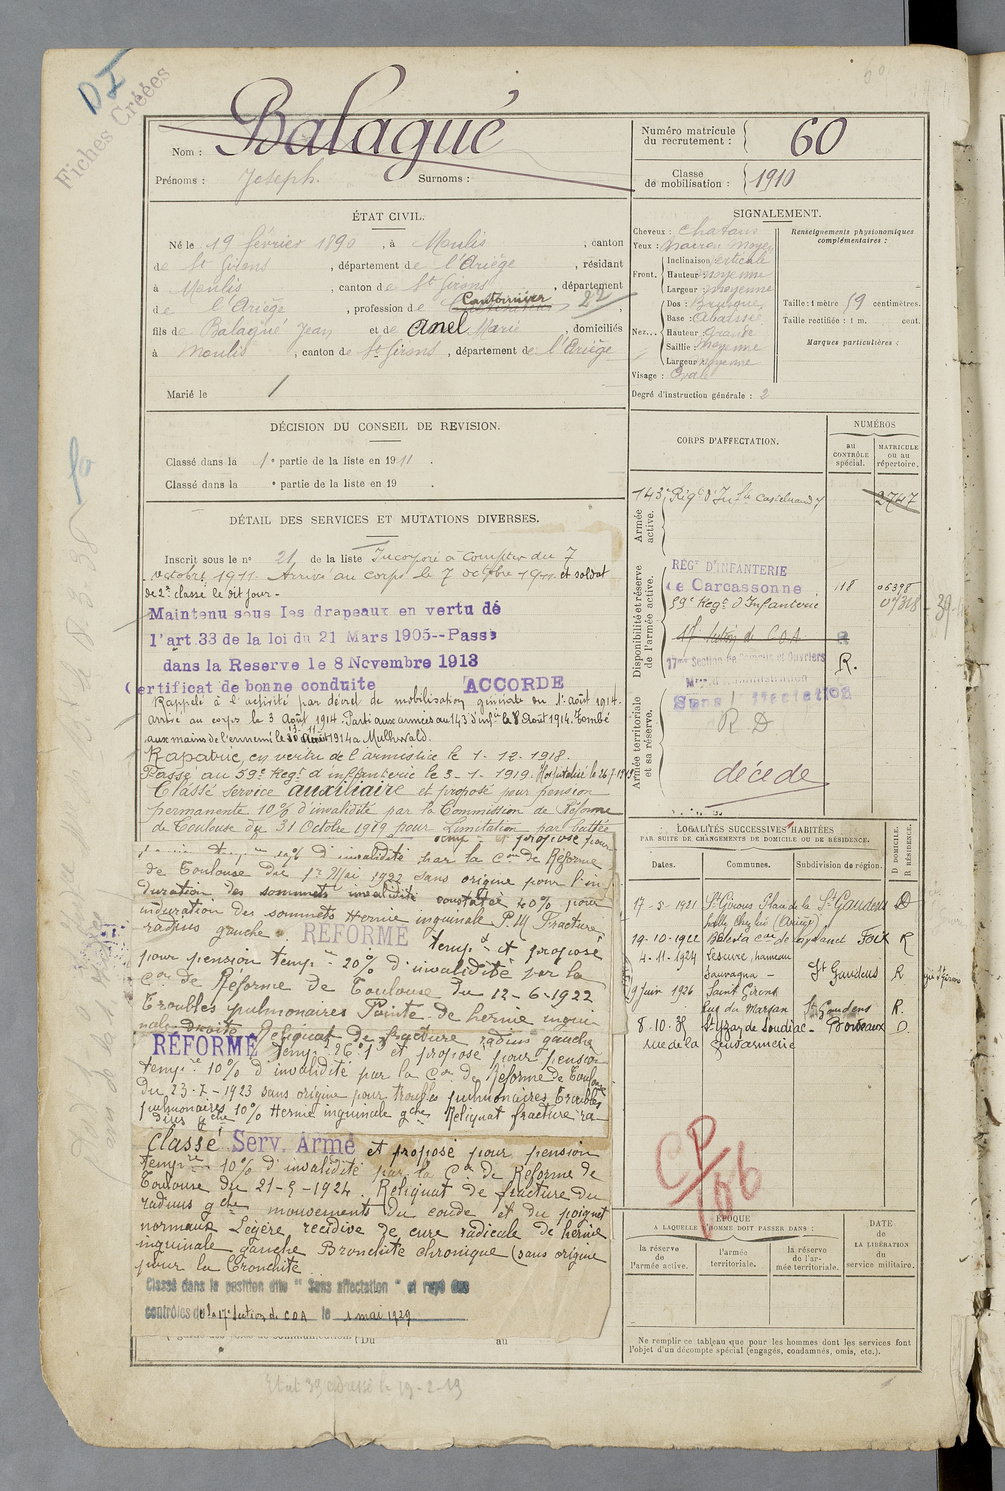 Fiches Créées
Balagué
Nom :
Prénoms : Joseph. Surnoms :
Numéro matricule du recrutement : 60
Classe de mobilisation : 1910
ÉTAT CIVIL.
Né le 19 février 1890, à Moulis, canton
de St Girons, département de l'Ariège, résidant
à Moulis, canton de St Girons, département
de l'Ariège, profession de Cantonnier 22,
fils de Balagué Jean et de Anel Marie, domiciliés
à Moulis, canton de St Girons, département de l'Ariège
Marié le
DÉCISION DU CONSEIL DE REVISION.
Classé dans la 1e partie de la liste en 1911.
Classé dans la e partie de la liste en 19 .
DÉTAIL DES SERVICES ET MUTATIONS DIVERSES.
Inscrit sous le n° 21 de la liste Incorporé à compter du 7
octobre 1911. Arrivé au corps le 7 octobre 1911 et soldat
de 2e classe le dit jour -
Maintenu sous les drapeaux en vertu de
l'art 33 de la loi du 21 Mars 1905--Passé
dans la Reserve le 8 Novembre 1913
Certificat de bonne conduite ACCORDE
Rappelé à l'activité par décret de mobilisation générale du 1er août 1914.
arrivé au corps le 3 Août 1914. Parti aux armées au 143 d'infie le 8 Août 1914. Tombé
aux mains de l'ennemi le Août 1914 à Mulhwald.
Rapatrié en vertu de l'armistice le 1-12-1918.
Passé au 59e Regt d'infanterie le 3-1-1919. Hospitalisé le 26-7-1919
Classé service auxiliaire et proposé pour pension
permanente 10% d'invalidité par la Commission de Réforme
de Toulouse du 31 Octobre 1919 pour Limitation par
temp et proposé pour
10% d'invalidité par la Con de Réforme
de Toulouse du 1er Mai 1922 sans origine pour l'in
duration des sommets invalidité constatée 40% pour
induration des sommets Hernie inguinale P.M Fracture
radius gauche. RÉFORMÉ temp. et proposé
pour pension tempre 20% d'invalidité par la
Con de Réforme de Toulouse du 12-6-1922
Troubles pulmonaires Pointe de hernie ingui
nale Droite Reliquat de fracture radius gauche
RÉFORMÉ Temp. et proposé pour pension
tempre 10% d'invalidité par la Con de Réforme de Toulouse
du 23-7-1923 sans origine pour troubles pulmonaires Troubles
pulmonaires 10% Hernie inguinale gche Reliquat fracture ra
dius gche
Classé Serv. Armé et proposé pour pension
tempre 10% d'invalidité par la Con de Réforme de
Toulouse du 21-5-1924. Reliquat de fracture du
radius gche mouvements du coude et du poignet
normaux Légère récidive de cure radicale de hernie
inguinale gauche Bronchite chronique (sans origine
pour la bronchite
Classé dans la position dite " Sans affectation " et rayé des
contrôles de la 17e Section de COA le 1 mai 1929
(Du au
Etat 39 adressé le 19-2-19
SIGNALEMENT.
Cheveux : chatain
Yeux : marron moyen
Front. Inclinaison verticale
Hauteur moyenne
Largeur moyenne
Nez... Dos : Busqué
Base : Abaissée
Hauteur Grande
Saillie Moyenne
Largeur Moyenne
Visage : Ovale
Renseignements physionomiques complémentaires :
Taille : 1 mètre 59 centimètres.
Taille rectifiée : 1 m. cent.
Marques particulières :
Degré d'instruction générale : 2
CORPS D'AFFECTATION.
NUMÉROS
au CONTRÔLE spécial.
MATRICULE ou au répertoire.
Armée active.
143e Regt d'Infie Castelnaudary 2747
Disponibilité et réserve de l'armée active.
REGt D'INFANTERIE
de Carcassonne 118 06398
59e Regt d'Infanterie
17e Section de C.O.A
17me Section de Commis et Ouvriers R.
Mre d'Administration
Armée territoriale et sa réserve.
Sans affectation
R D
décédé
LOCALITÉS SUCCESSIVES HABITÉES
PAR SUITE DE CHANGEMENTS DE DOMICILE OU DE RÉSIDENCE.
Dates. Communes. Subdivision de région. D DOMICILE. R RÉSIDENCE.
17-5-1921 St Girons Plan de la St Gaudens D
19-10-1922 Foix R
4-11-1924 Lescure, hameau
Sauvagna - St Gaudens R
19 Juin 1926 Saint Girons
Rue du Marsan St Gaudens R.
8.10.35 St Yzan de Soudiac - Bordeaux D
rue de la gendarmerie
CP/66
ÉPOQUE
A LAQUELLE L'HOMME DOIT PASSER DANS :
la réserve de l'armée active.
l'armée territoriale.
la réserve de l'armée territoriale.
DATE DE LA LIBÉRATION du service militaire.
Ne remplir ce tableau que pour les hommes dont les services font
l'objet d'un décompte spécial (engagés, condamnés, omis, etc.).